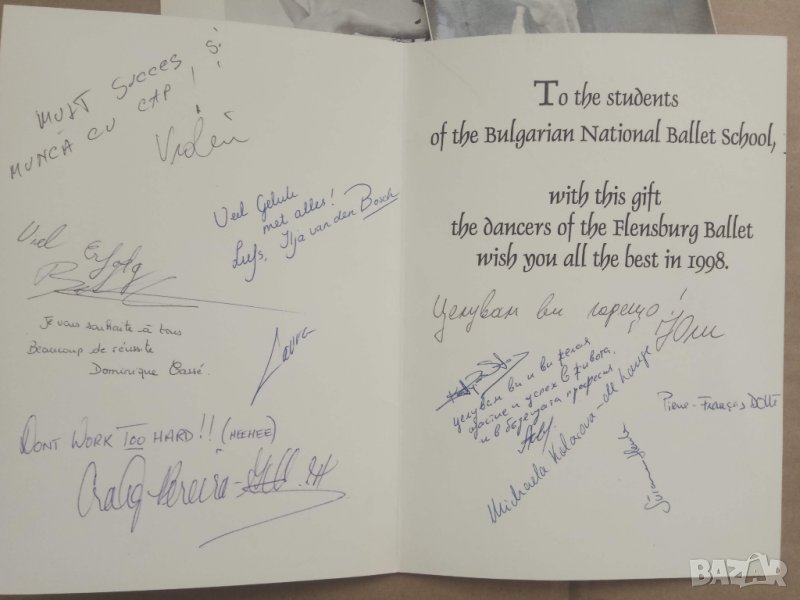 MULT SUCCES ȘI
MUNCĂ CU CAP!
Viel
Erfolg
Veel Geluk
met alles!
Liefs, Ilja van den Bosch
Je vous souhaite à tous
Beaucoup de réussite
Dominique
Laura
DONT WORK TOO HARD!! (HEEHEE)
Craig Pereira
To the students
of the Bulgarian National Ballet School,
with this gift
the dancers of the Flensburg Ballet
wish you all the best in 1998.
Целувам ви горещо!
целувам ви и ви желая
щастие и успех в живота
и в бъдещата професия
Michaela Kolarova - de Lange
Pierre-François DOLLÉ
BAZAR